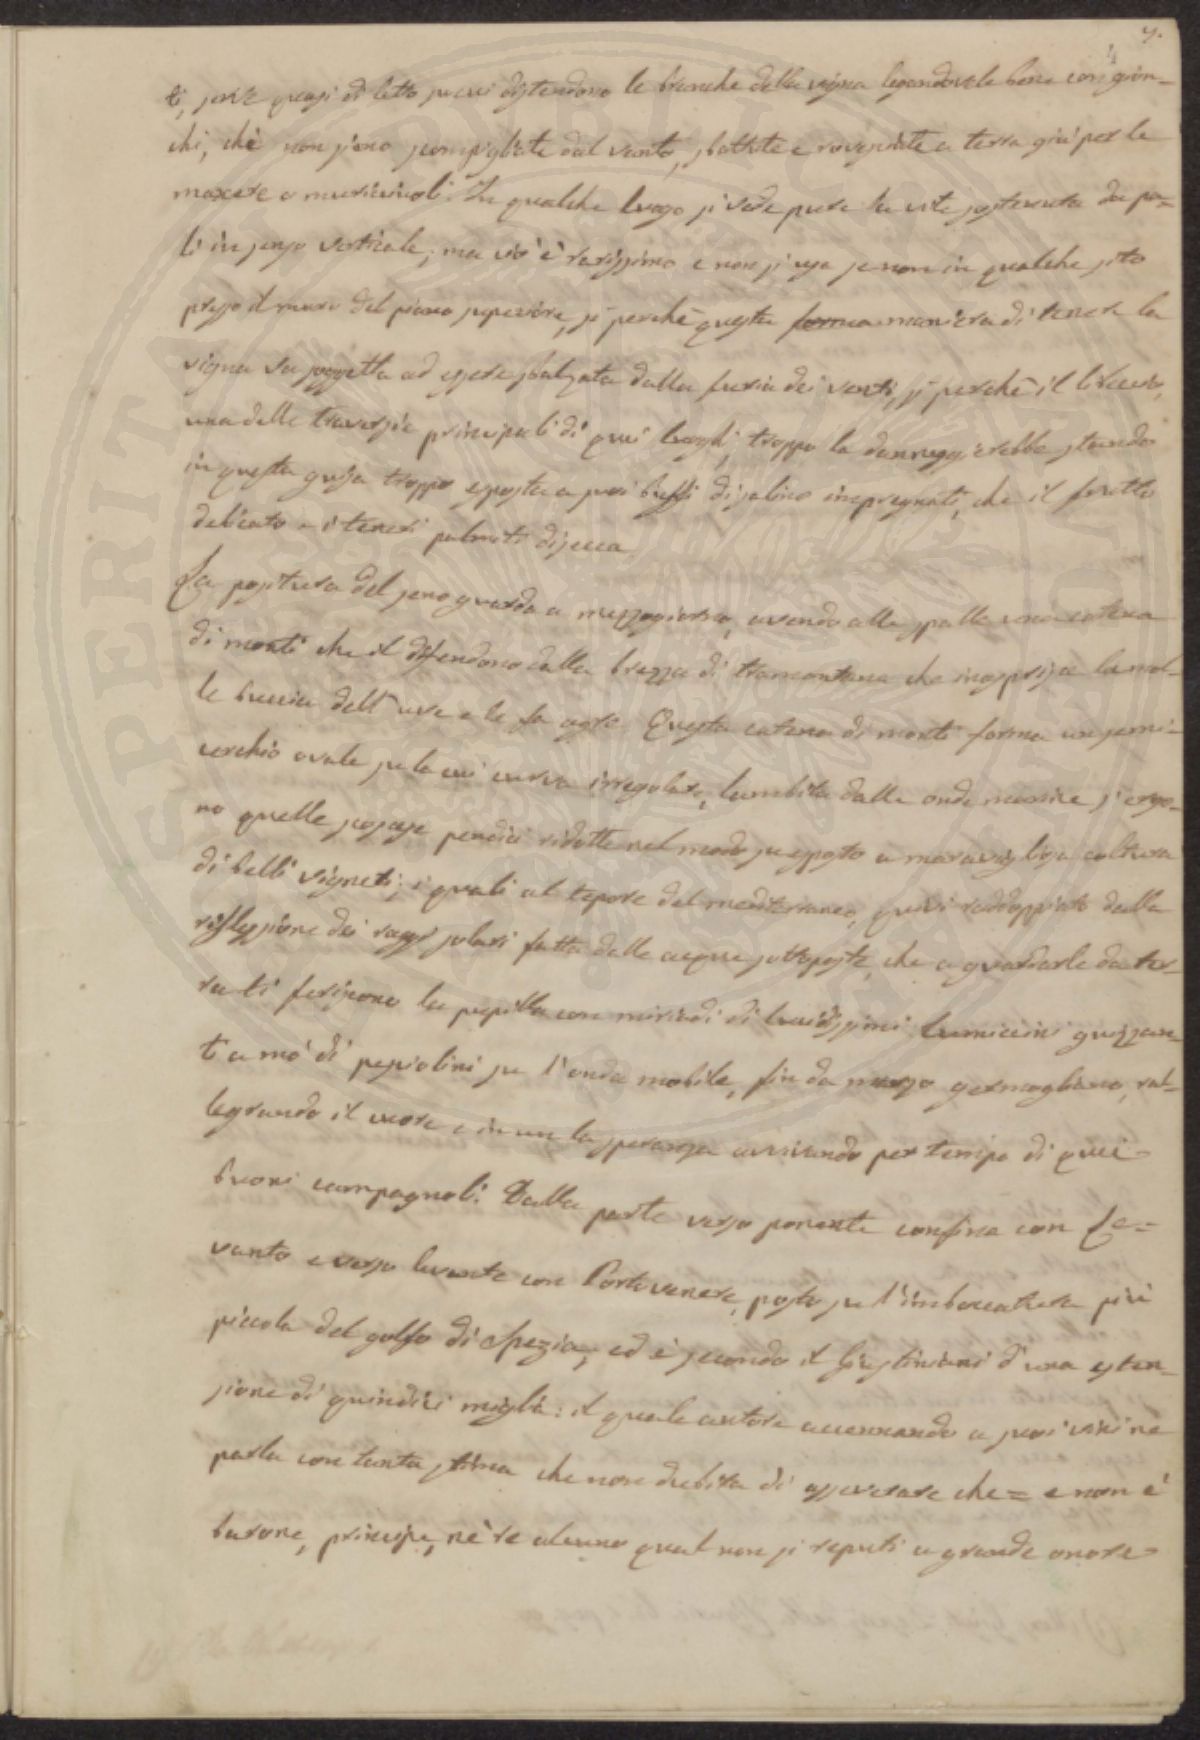 7.
4
ti, serve quasi di letto su cui distendono le branche della vigna legandovele bene con giun-
chi, chè non sieno scompigliate dal vento, sbattute e rovesciate a terra giù per le
macere o muricciuoli. In qualche luogo si vede pure la vite sostenuta da pa-
li in senso verticale; ma ciò è rarissimo e non si usa se non in qualche sito
presso il muro del piano superiore, sì perchè questa forma maniera di tenere la
vigna va soggetta ad essere sbalzata dalla furia dei venti, sì perchè il libeccio,
una delle traversie principali di quei luoghi, troppo la danneggierebbe stando
in questa guisa troppo esposta a suoi buffi di salino impregnati, che il frutto
delicato e i teneri palmiti dissecca.
La positura del seno guarda a mezzogiorno, avendo alle spalle una catena
di monti che il difendono dalla brezza di tramontana che inasprisce la mol-
le buccia dell'uve e le fa agre. Questa catena di monti forma un semi-
cerchio ovale su la cui curva irregolare, lambita dalle onde marine s'ergo-
no quelle scoscese pendici ridotte nel modo suesposto a maravigliosa coltura
di belli vigneti; i quali al tepore del mediterraneo, quivi raddoppiato dalla
riflessione dei raggi solari fatta dalle acque sottoposte, che a guardarle da ter-
ra ti feriscono la pupilla con miriadi di lucidissimi lumicini guizzan-
ti a mò di pesciolini su l'onda mobile, fin da marzo germogliano, ral-
legrando il cuore e in un la speranza avvivando per tempo di quei
buoni campagnoli. Dalla parte verso ponente confina con Le-
vanto e verso levante con Portovenere, posto su l'imboccatura più
piccola del golfo di Spezia; ed è secondo il Giustiniani d'una esten-
sione di quindici miglia: il quale autore accennando a suoi vini ne
parla con tanta stima che non dubita di asseverare che = e non è
barone, principe, nè re alcuno qual non si reputi a grande onore =